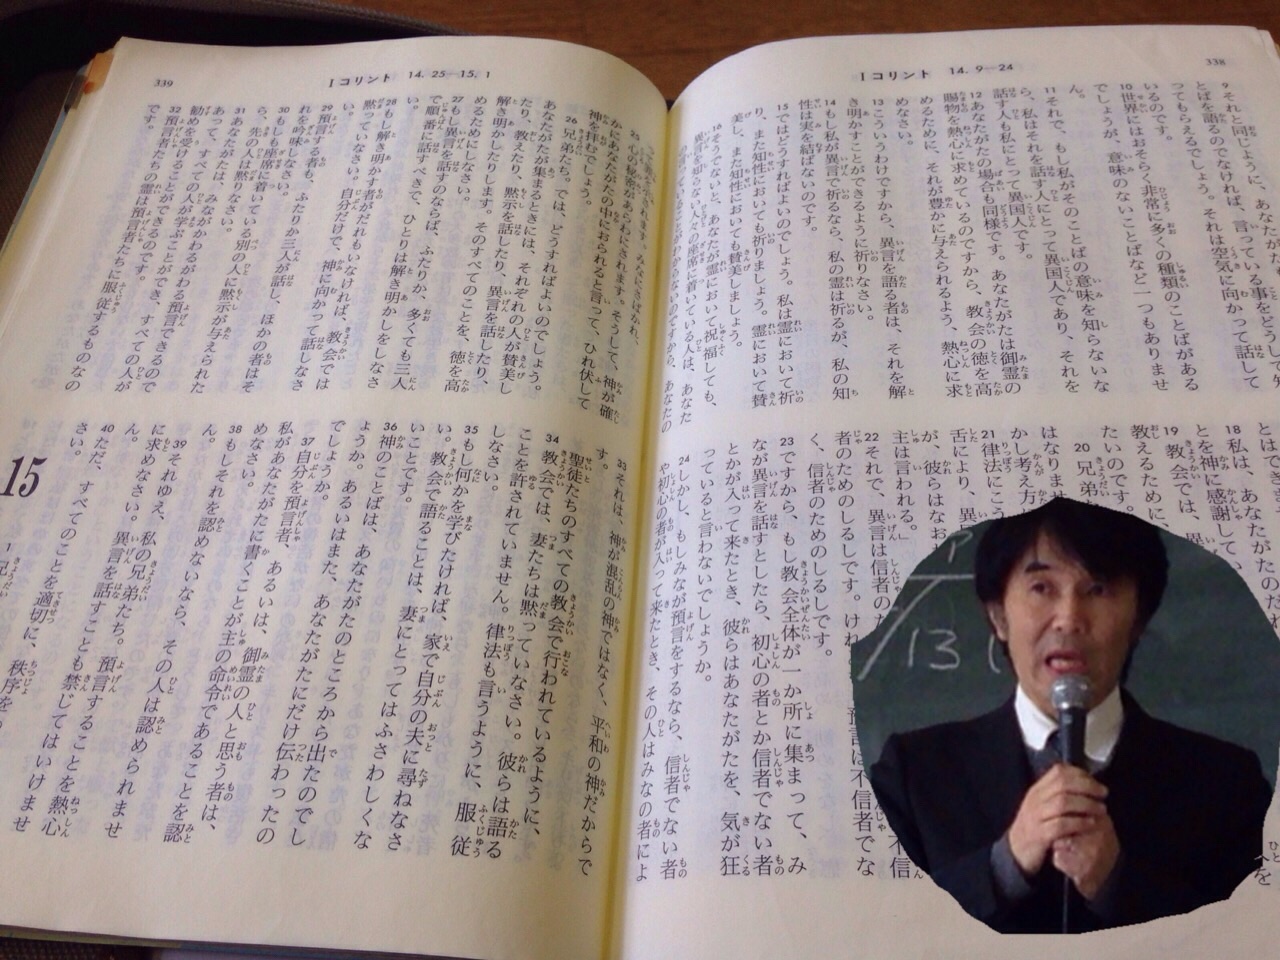 338
Ⅰコリント 14.9―24
9 それと同じように、あなたがたも
とばを語るのでなければ、言っている事をどうして知
ってもらえるでしょう。それは空気に向かって話して
いるのです。
10 世界にはおそらく非常に多くの種類のことばがある
でしょうが、意味のないことばなど一つもありませ
ん。
11 それで、もし私がそのことばの意味を知らないな
ら、私はそれを話す人にとって異国人であり、それを
話す人も私にとって異国人です。
12 あなたがたの場合も同様です。あなたがたは御霊の
賜物を熱心に求めているのですから、教会の徳を高
めるために、それが豊かに与えられるよう、熱心に求
めなさい。
13 こういうわけですから、異言を語る者は、それを解
き明かすことができるように祈りなさい。
14 もし私が異言で祈るなら、私の霊は祈るが、私の知
性は実を結ばないのです。
15 ではどうすればよいのでしょう。私は霊において祈
り、また知性においても祈りましょう。霊において賛
美し、また知性においても賛美しましょう。
16 そうでないと、あなたが霊において祝福しても、
異言を知らない人々の座席に着いている人は、あなた
とはで
18 私は、あなたがたのだ
とを神に感謝してい
19 教会では、異
教えるために、
たいのです。
20 兄弟
はなりませ
かし考え方
21 律法にこう
舌により、異
が、彼らはなお
主は言われる。」
22 それで、異言は信者のた
者のためのしるしです。けれ
預言は不信者でな
く、信者のためのしるしです。
23 ですから、もし教会全体が一か所に集まって、み
なが異言を話すとしたら、初心の者とか信者でない者
とかが入って来たとき、彼らはあなたがたを、気が狂
っていると言わないでしょうか。
24 しかし、もしみなが預言をするなら、信者でない者
や初心の者が入って来たとき、その人はみなの者によ
339
Ⅰコリント 14.25―15.1
25 心の秘密があらわにされます。そうして、神が確
かにあなたがたの中におられると言って、ひれ伏して
神を拝むでしょう。
26 兄弟たち。では、どうすればよいのでしょう。
あなたがたが集まるときには、それぞれの人が賛美し
たり、教えたり、黙示を話したり、異言を話したり、
解き明かしたりします。そのすべてのことを、徳を高
めるためにしなさい。
27 もし異言を話すのならば、ふたりか、多くても三人
で順番に話すべきで、ひとりは解き明かしをしなさ
い。
28 もし解き明かす者がだれもいなければ、教会では
黙っていなさい。自分だけで、神に向かって話しなさ
い。
29 預言する者も、ふたりか三人が話し、ほかの者はそ
れを吟味しなさい。
30 もしも座席に着いている別の人に黙示が与えられた
ら、先の人は黙りなさい。
31 あなたがたは、みながかわるがわる預言できるので
あって、すべての人が学ぶことができ、すべての人が
勧めを受けることができるのです。
32 預言者たちの霊は預言者たちに服従するものなの
です。
33 それは、神が混乱の神ではなく、平和の神だからで
す。
聖徒たちのすべての教会で行われているように、
34 教会では、妻たちは黙っていなさい。彼らは語る
ことを許されていません。律法も言うように、服従
しなさい。
35 もし何かを学びたければ、家で自分の夫に尋ねなさ
い。教会で語ることは、妻にとってはふさわしくな
いことです。
36 神のことばは、あなたがたのところから出たのでし
ょうか。あるいはまた、あなたがたにだけ伝わったの
でしょうか。
37 自分を預言者、あるいは、御霊の人と思う者は、
私があなたがたに書くことが主の命令であることを認
めなさい。
38 もしそれを認めないなら、その人は認められませ
ん。
39 それゆえ、私の兄弟たち。預言することを熱心
に求めなさい。異言を話すことも禁じてはいけませ
ん。
40 ただ、すべてのことを適切に、秩序を
さい。
15
13